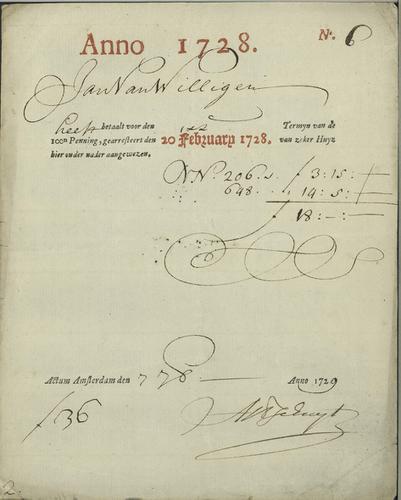 Anno 1728.
Nº. 6
Jan Van Willigen
heeft betaalt voor den 1ste Termyn van de
100ⁿ Penning, gearresteert den 20 February 1728. van zeker Huyz
hier onder nader aangewezen.
Nº. 206. ƒ 3:15:
648. 14:5:
ƒ 18:-:-
Actum Amsterdam den 7 Anno 1729
ƒ36
2.